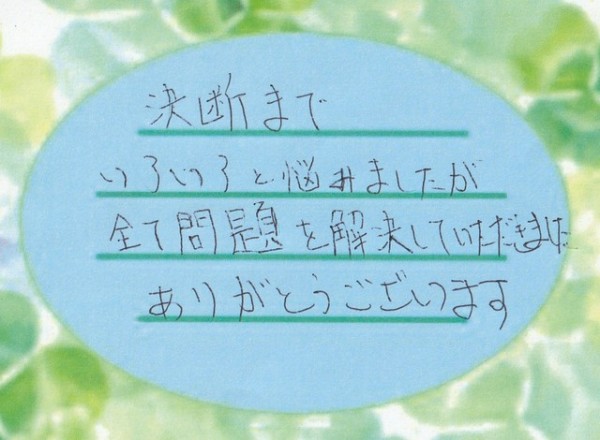 決断まで
いろいろと悩みましたが
全て問題を解決していただきました
ありがとうございます